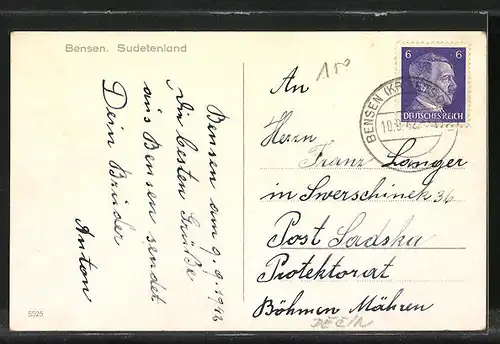 Bensen. Sudetenland
Bensen am 9.9.1942
Die besten Grüße
aus Bensen sendet
Dein Bruder
Anton
5325
150
6 6
DEUTSCHES REICH
BENSEN (KR.
10.9.42
An
Herrn
Franz Langer
in Swerschinek 36
Post Sadska
Protektorat
Böhmen Mähren